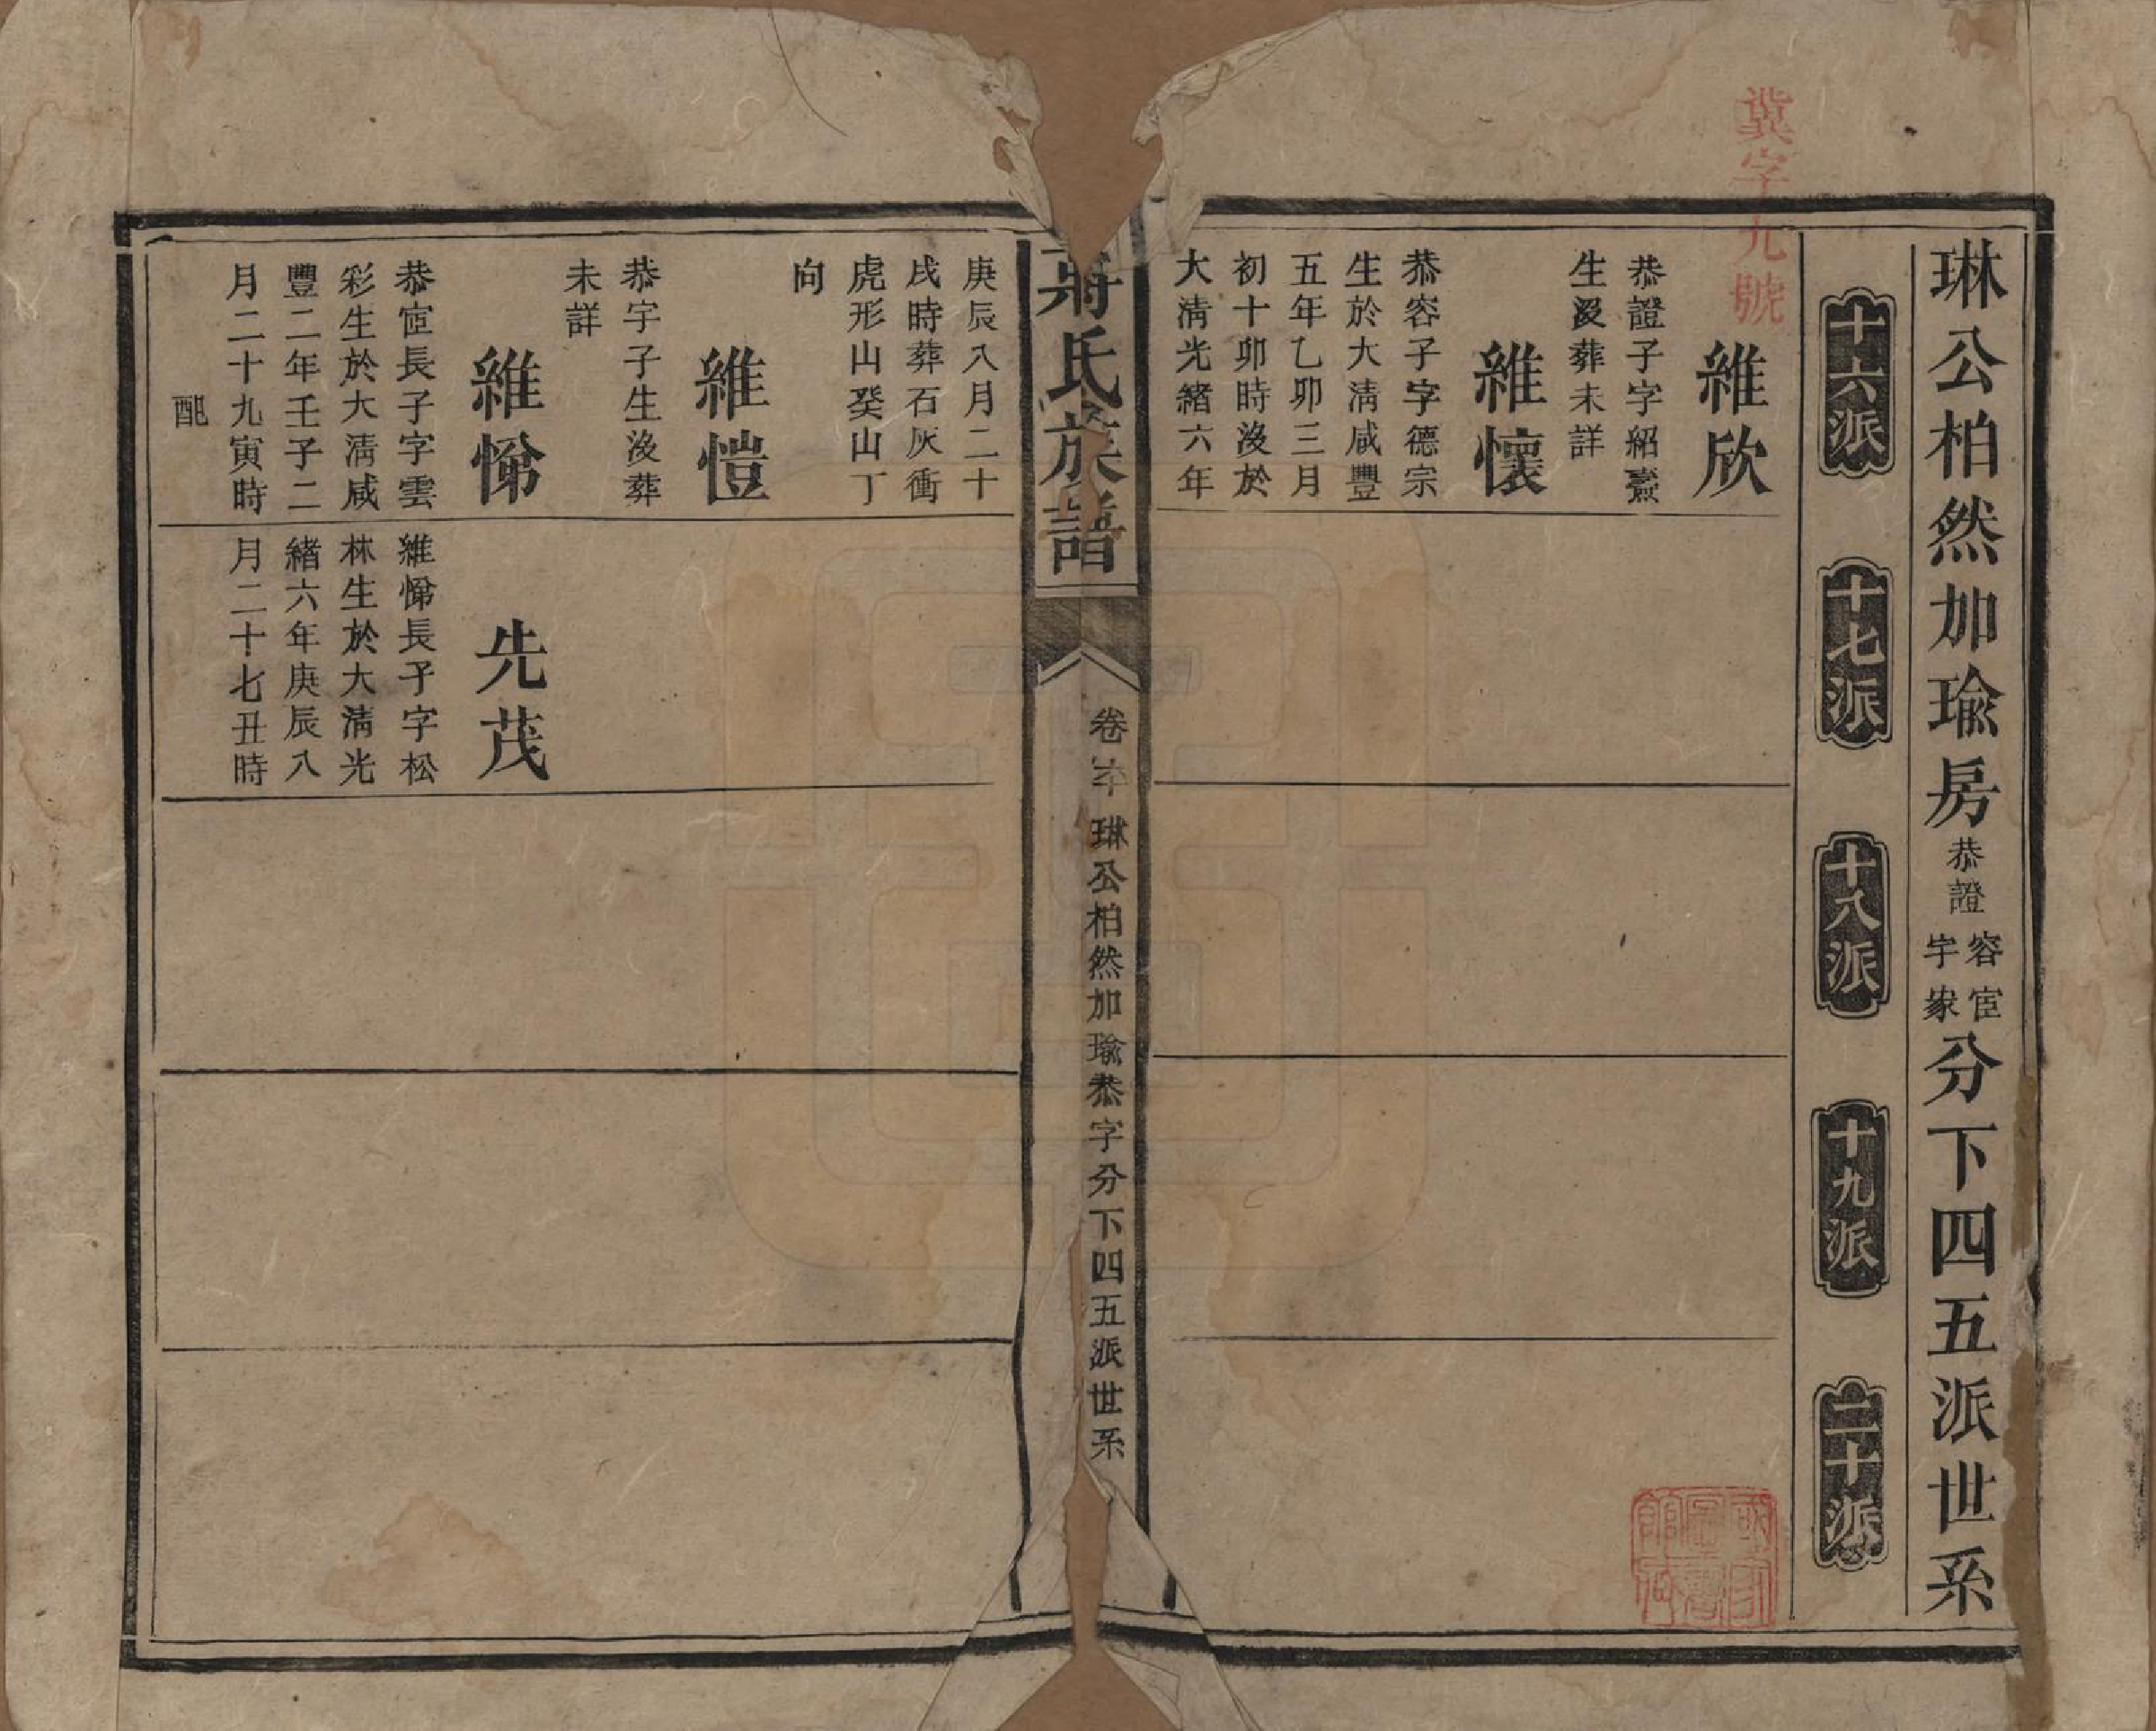 冀字九號
琳公柏然加瑜房恭證容宦宇家分下四五派世系
十六派
十七派
十八派
十九派
二十派
維欣
恭證子字紹燾
生沒葬未詳
維懷
恭容子字德宗
生於大淸咸豐
五年乙卯三月
初十卯時沒於
大淸光緒六年
蔣氏族譜
卷六十
琳公柏然加瑜恭字分下四五派世系
庚辰八月二十
戌時葬石灰衝
虎形山癸山丁
向
維愷
恭宇子生沒葬
未詳
維悌
恭宦長子字雲
彩生於大淸咸
豐二年壬子二
月二十九寅時
配
先茂
維悌長子字松
林生於大淸光
緒六年庚辰八
月二十七丑時